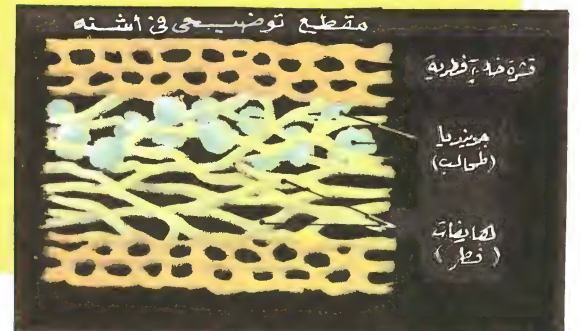 مقطع توضيحى فى أشنه
قشرة فطرية
جونيديا
(طحالب)
(فطر)